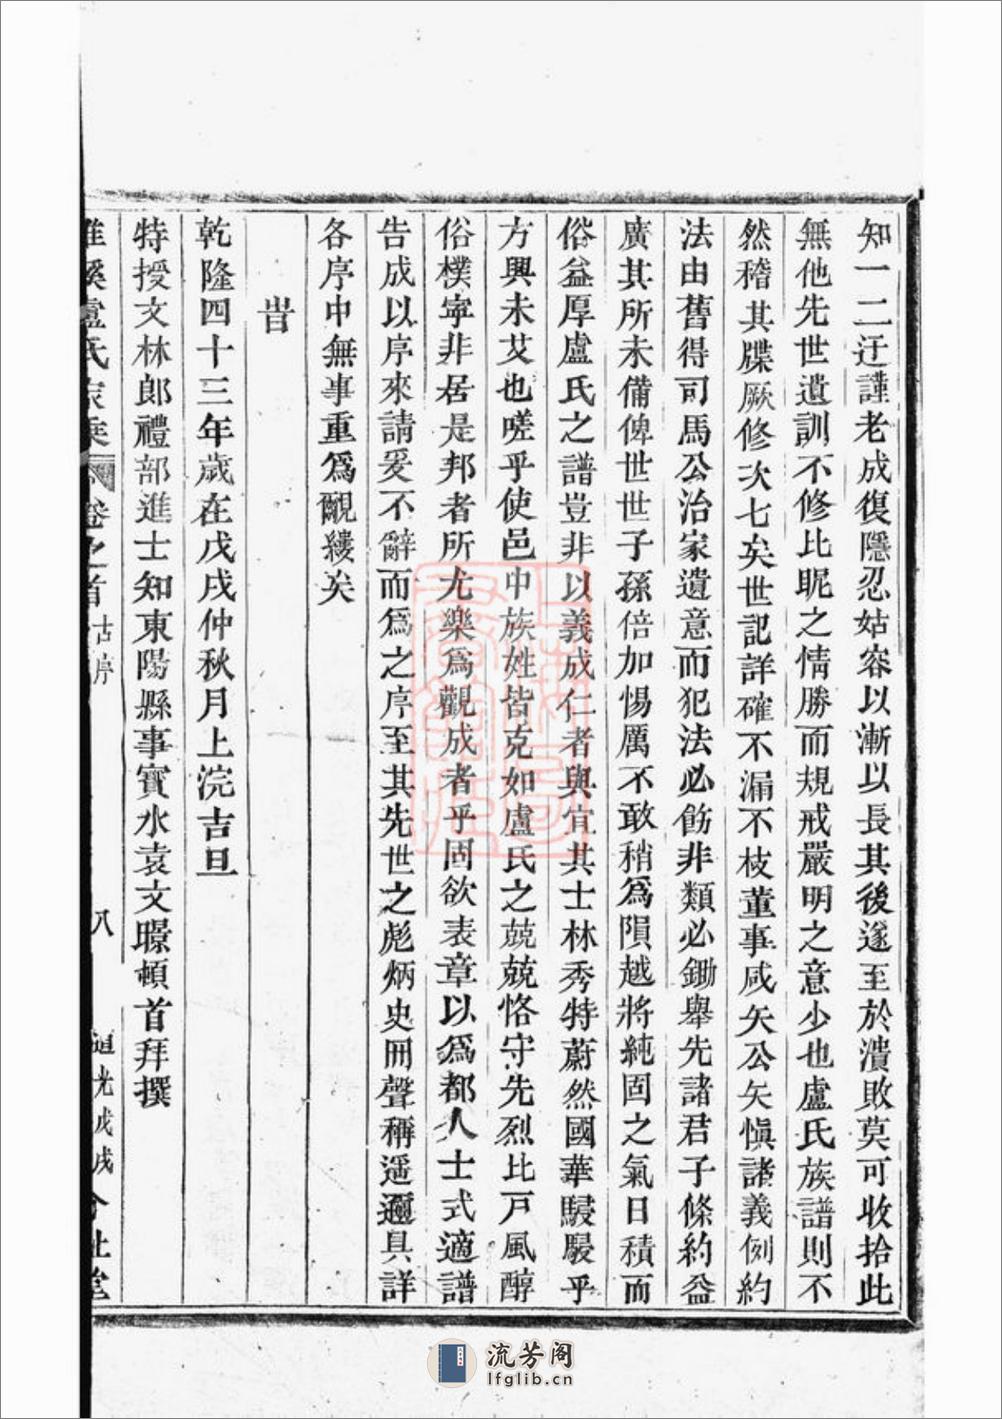 知一二迂謹老成復隱忍姑容以漸以長其後遂至於潰敗莫可收拾此
無他先世遺訓不修比昵之情勝而規戒嚴明之意少也盧氏族譜則不
然稽其牒厥修次七矣世記詳確不漏不枝董事咸矢公矢慎諸義例約
法由舊得司馬公治家遺意而犯法必飭非類必鋤舉先諸君子條約益
廣其所未備俾世世子孫倍加惕厲不敢稍為隕越將純固之氣日積而
俗益厚盧氏之譜豈非以義成仁者與宜其士林秀特蔚然國華駸駸乎
方興未艾也嗟乎使邑中族姓皆克如盧氏之兢兢恪守先烈比戸風醇
俗樸寧非居是邦者所尤樂為觀成者乎固欲表章以為都人士式適譜
告成以序來請爰不辭而為之序至其先世之彪炳史冊聲稱遥邇具詳
各序中無事重為覼縷矣
旹
乾隆四十三年歲在戊戌仲秋月上浣吉旦
特授文林郎禮部進士知東陽縣事寳水袁文曔頓首拜撰
溪盧氏家乘 卷之首 古序 八 道光戊戌
流芳阁
lfglib.cn